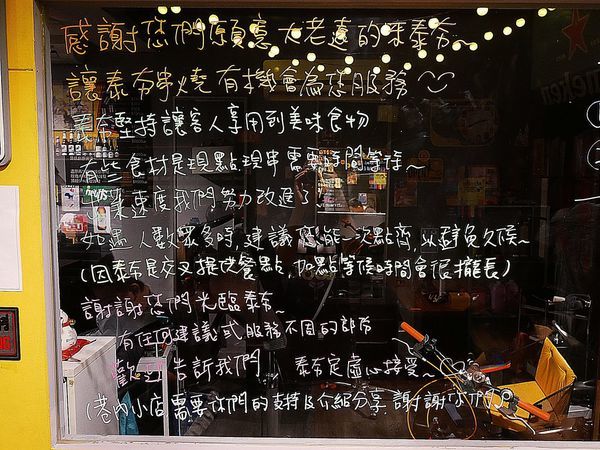 感謝您們願意大老遠的來泰夯~
讓泰夯串燒有機會為您服務
泰夯堅持讓客人享用到美味食物
有些食材是現點現串需要時間等候~
出菜速度我們努力改進了
如遇人數眾多時,建議您能一次點齊,以避免久候~
(因泰夯是交叉提供餐點,加點等候時間會很攏長)
謝謝您們光臨泰夯~
有任何建議或服務不周的部份
歡迎告訴我們 泰夯定虛心接受~
(巷內小店需要你們的支持及介紹分享 謝謝你們)
Heineken